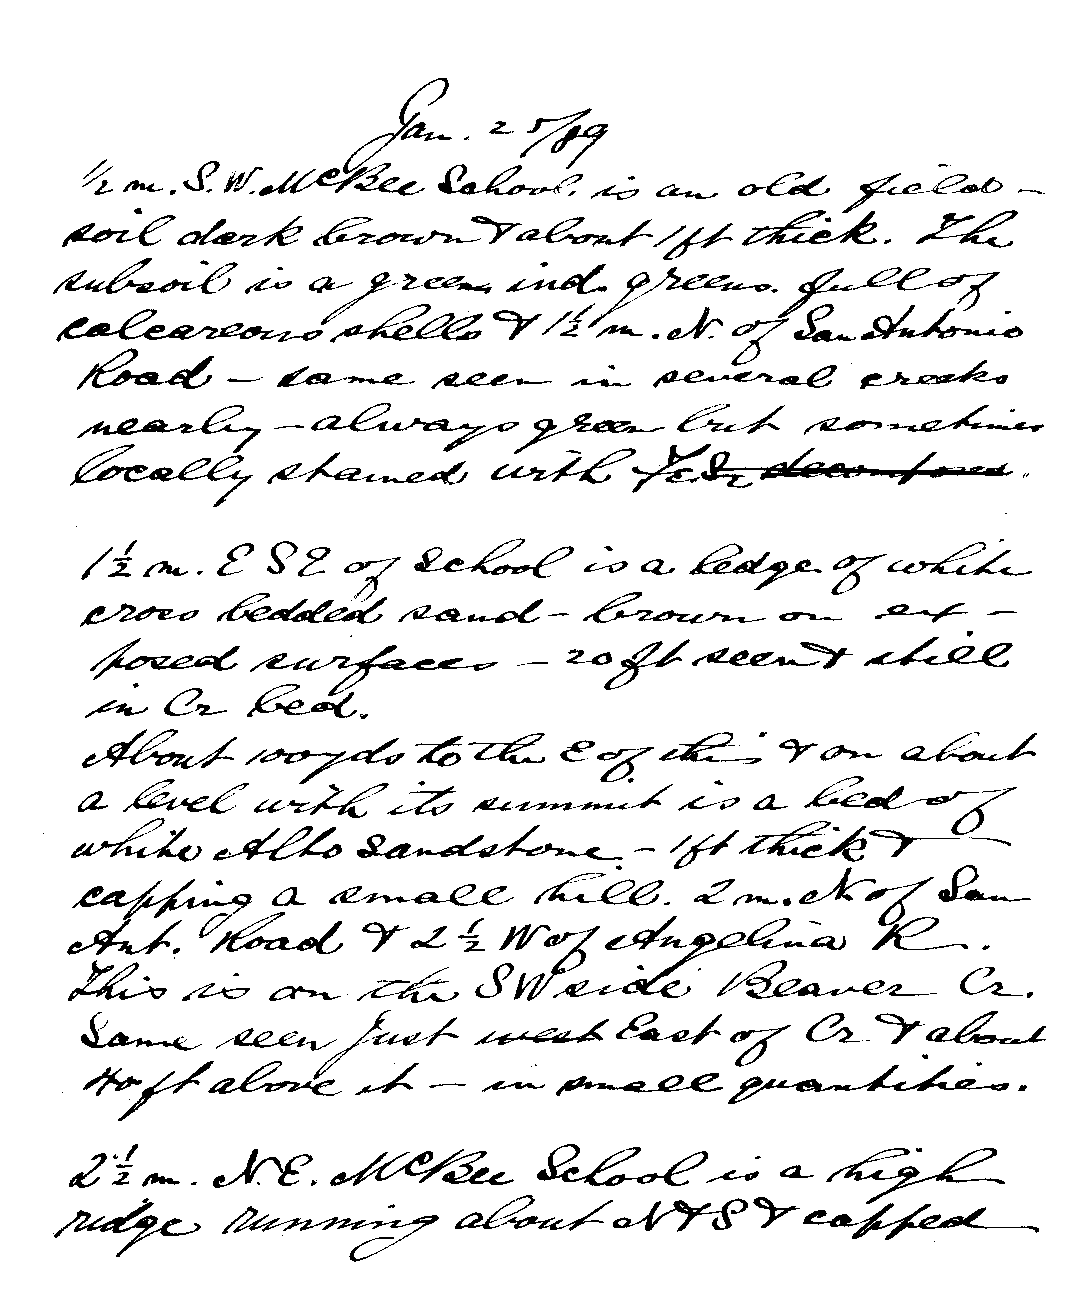 Jan. 25/89
1/2 m. S.W. McBee School. is an old field –
soil dark brown & about 1ft thick. The
subsoil is a green ind. greens. full of
calcareous shells & 1 1/2 m. N. of San Antonio
Road – same seen in several creeks
nearby – always green but sometimes
locally stained with
1 1/2 m. E S E of School is a ledge of white
cross bedded sand – brown on ex –
posed surfaces – 20 ft seen & still
in Cr bed.
About 100 yds to the E of this & on about
a level with its summit is a bed of
white Alto Sandstone – 1ft thick &
capping a small hill. 2 m. N of San
Ant. Road & 2 1/2 W of Angelina R.
This is on the SW side Beaver Cr.
Same seen just west East of Cr & about
40 ft above it – in small quantities.
2 1/2 m. N.E. McBee School is a high
ridge running about N & S & capped